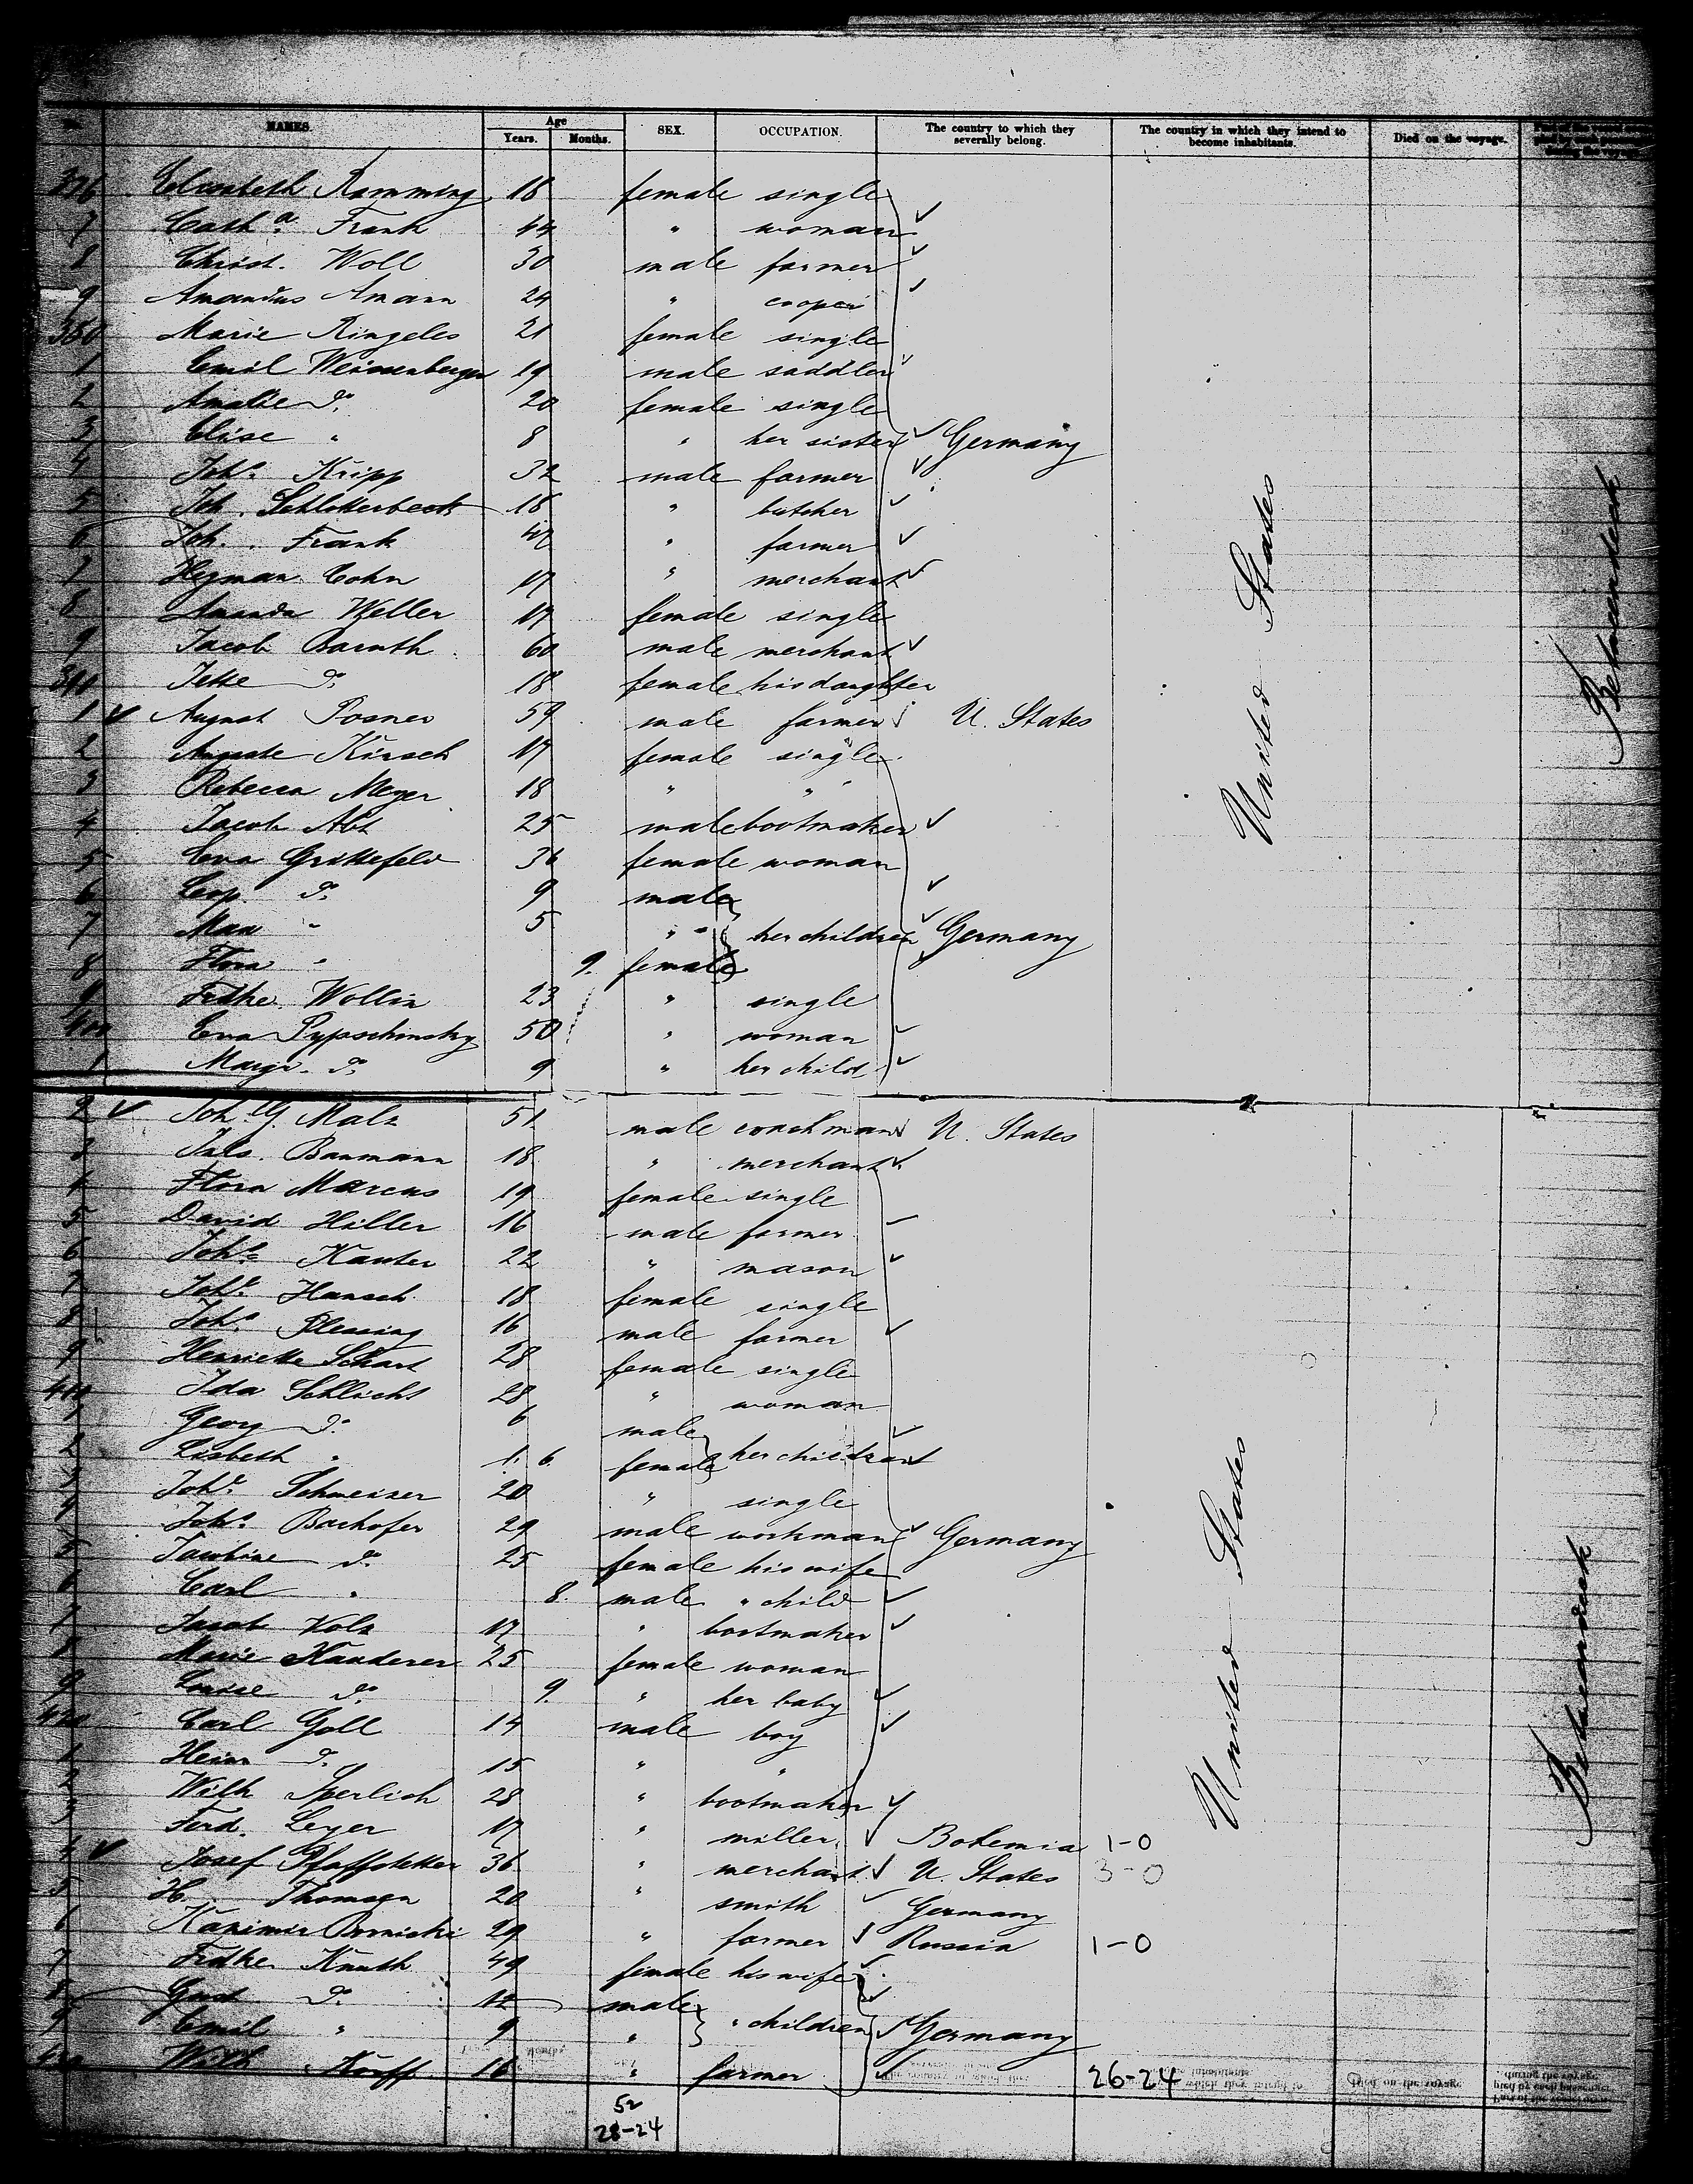 NAMES. Age Years. Months. SEX. OCCUPATION. The country to which they severally belong. The country in which they intend to become inhabitants. Died on the voyage.
376 Elisabeth Ramming 18 female single
7 Cath.a Frank 44 " woman
8 Christ. Woll 30 male farmer
9 Amandus Amann 24 " cooper
380 Marie Ringeles 21 female single
1 Emil Weissenberger 19 male saddler
2 Amalie do. 20 female single
3 Elise " 8 " her sister Germany
4 Joh.s Kripp 32 male farmer
5 Joh. Schlotterbeck 18 " butcher
6 Joh. Frank 42 " farmer
7 Heyman Cohn 17 " merchant
8 Amanda Weller 17 female single
9 Jacob Baruth 60 male merchant
390 Jette do. 18 female his daughter
1 August Posner 59 male farmer U. States
2 Auguste Kirsch 17 female single
3 Rebecca Meyer 18 " "
4 Jacob Abt 25 male bootmaker
5 Eva Grittefeld 36 female woman
6 Leop. do. 9 male
7 Max " 5 " her children Germany
8 Flora " 9. female
9 Fritke. Wollin 23 " single
400 Eva Pypschinsky 50 " woman
1 Margr. do. 9 " her child
United States
Between deck
2 Joh. G. Malz 51 male coachman U. States
3 Juls. Baumann 18 " merchant
4 Flora Marcus 19 female single
5 David Hiller 16 male farmer
6 Joh.s Kauter 22 " mason
7 Joh.e Hansch 18 female single
8 Joh.s Plessing 16 male farmer
9 Henriette Schart 28 female single
410 Ida Schlicht 28 " woman
1 Georg do. 6 male
2 Lisbeth " 1. 6. female her children
3 Joh.e Schweizer 20 " single
4 Joh.s Bachofer 29 male workman Germany
5 Jacobine do. 25 female his wife
6 Carl " 8. male " child
7 Jacob Volz 17 " bootmaker
8 Marie Kauderer 25 female woman
9 Louise do. 9. " her baby
420 Carl Goll 14 male boy
1 Heinr. do. 15 " "
2 Wilh Sperlich 28 " bootmaker
3 Ferd. Leyer 17 " miller Bohemia 1-0
4 Josef Pfaffstetter 36 " merchant U. States 3-0
5 H. Thomsen 20 " smith Germany
6 Kasimir 29 " farmer Russia 1-0
7 Fridke. Knuth 49 female his wife
8 Gust do. 12 male
9 Emil " 9 " " children Germany
430 Wilh. Knuff 16 " farmer 26-24
United States
Between deck
52
28-24